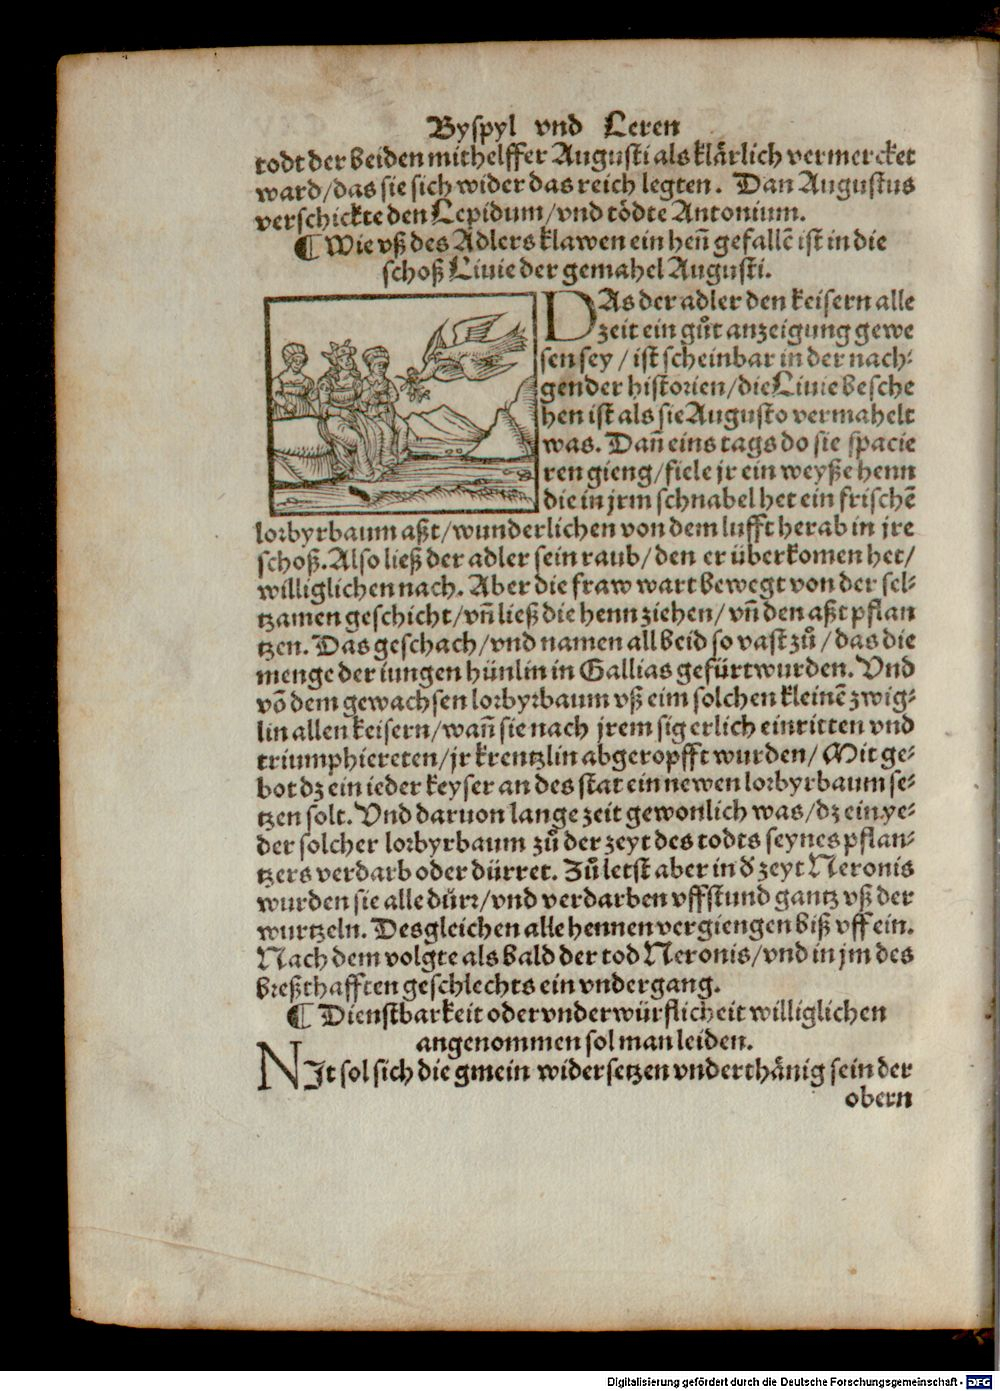 Byſpyl vnd Leren
todt der beiden mithelffer Auguſti als klärlich vermercket
ward/das sie sich wider das reich legten. Dan Auguſtus
verschickte den Lepidum/vnd tödte Antonium.
¶ Wie vß des Adlers klawen ein heñ gefallē iſt in die
schoß Liuie der gemahel Auguſti.
DAs der adler den keisern alle
zeit ein gůt anzeigung gewe
sen sey / iſt scheinbar in der nach⸗
gender hiſtorien/die Liuie besche
hen iſt als sie Auguſto vermahelt
was. Dañ eins tags do sie spacie
ren gieng/fiele jr ein weyße henn
die in jrm schnabel het ein frischē
lorbyrbaum aßt/wunderlichen von dem lufft herab in jre
schoß. Also ließ der adler sein raub/den er überkomen het/
williglichen nach. Aber die fraw wart bewegt von der sel⸗
tzamen geschicht/vñ ließ die henn ziehen/vñ den aßt pflan
tzen. Das geschach/vnd namen all beid so vaſt zů/das die
menge der iungen hünlin in Gallias gefürt wurden. Vnd
vō dem gewachsen lorbyrbaum vß eim solchen kleinē zwig⸗
lin allen keisern/wañ sie nach jrem sig erlich einritten vnd
triumphiereten/jr krentzlin abgeropfft wurden/Mit ge⸗
bot dz ein ieder keyser an des ſtat ein newen lorbyrbaum se⸗
tzen solt. Vnd daruon lange zeit gewonlich was/dz ein ye⸗
der solcher lorbyrbaum zů der zeyt des todts seynes pflan⸗
tzers verdarb oder dürret. Zů letſt aber in d̕ zeyt Neronis
wurden sie alle dürr/vnd verdarben vffſtund gantz vß der
wurtzeln. Desgleichen alle hennen vergiengen biß vff ein.
Nach dem volgte als bald der tod Neronis/vnd in jm des
breßthafften geschlechts ein vndergang.
¶ Dienſtbarkeit oder vnderwürflicheit williglichen
angenommen sol man leiden.
NJt sol sich die gmein widersetzen vnderthänig sein der
obern
Digitalisierung gefördert durch die Deutsche Forschungsgemeinschaft - DFG